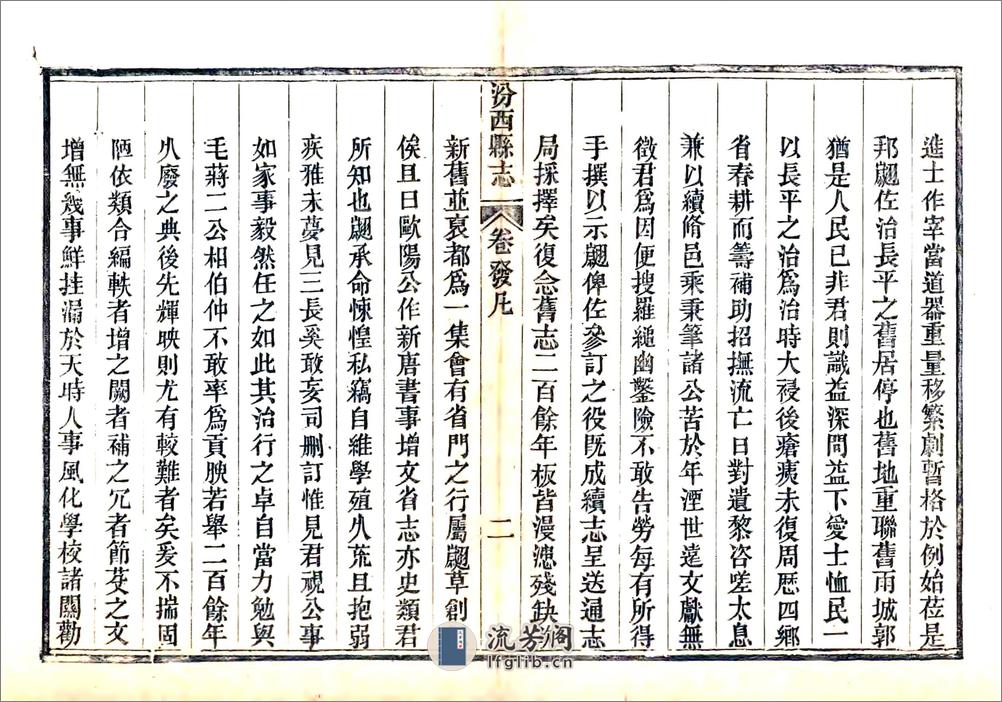 進士作宰當道器重量移繁劇暫格於例始莅是
邦翽佐治長平之舊居停也舊地重聯舊雨城郭
猶是人民已非君則識益深問益下愛士恤民一
以長平之治爲治時大祲後瘡痍未復周歷四鄉
省春耕而籌補助招撫流亡日對遺黎咨嗟太息
兼以續脩邑乘秉筆諸公苦於年湮世遠文獻無
徵君爲因便搜羅縋幽鑿險不敢告勞每有所得
手撰以示翽俾佐參訂之役既成續志呈送通志
局採擇矣復念舊志二百餘年板皆漫漶殘缺
汾西縣志
卷發凡
二
新舊並裒都爲一集會有省門之行屬翽草創
俟且曰歐陽公作新唐書事增文省志亦史類君
所知也翽承命悚惶私竊自維學殖久荒且抱弱
疾雅未夢見三長奚敢妄司刪訂惟見君視公事
如家事毅然任之如此其治行之卓自當力勉與
毛蔣二公相伯仲不敢率爲貢腴若舉二百餘年
久廢之典後先輝映則尤有較難者矣爰不揣固
陋依類合編軼者增之闕者補之冗者節芟之文
增無幾事鮮挂漏於天時人事風化學校諸關勸
流芳阁
lfglib.cn